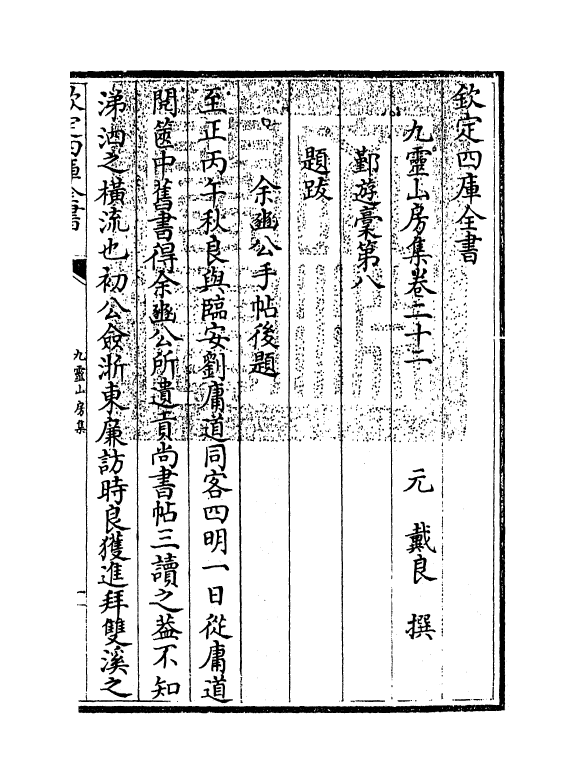 欽定四庫全書
九靈山房集卷二十二　　元　戴良　撰
鄞遊稾第八
題跋
余豳公手帖後題
至正丙午秋良與臨安劉庸道同客四明一日從庸道
閱篋中舊書得余豳公所遺貢尚書帖三讀之葢不知
涕泗之橫流也初公僉浙東廉訪時良獲進拜雙溪之
欽定四庫全書
九靈山房集
一